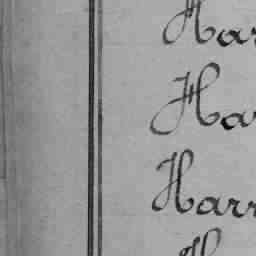 Har
Har
Harr
H